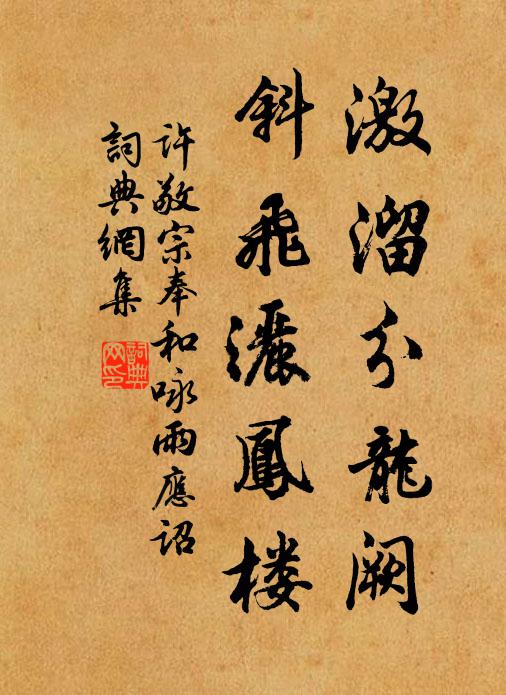 激溜分龍闕
斜飛灑鳳楼
許敬宗奉和咏雨應詔
詞典網集
詞典
网印